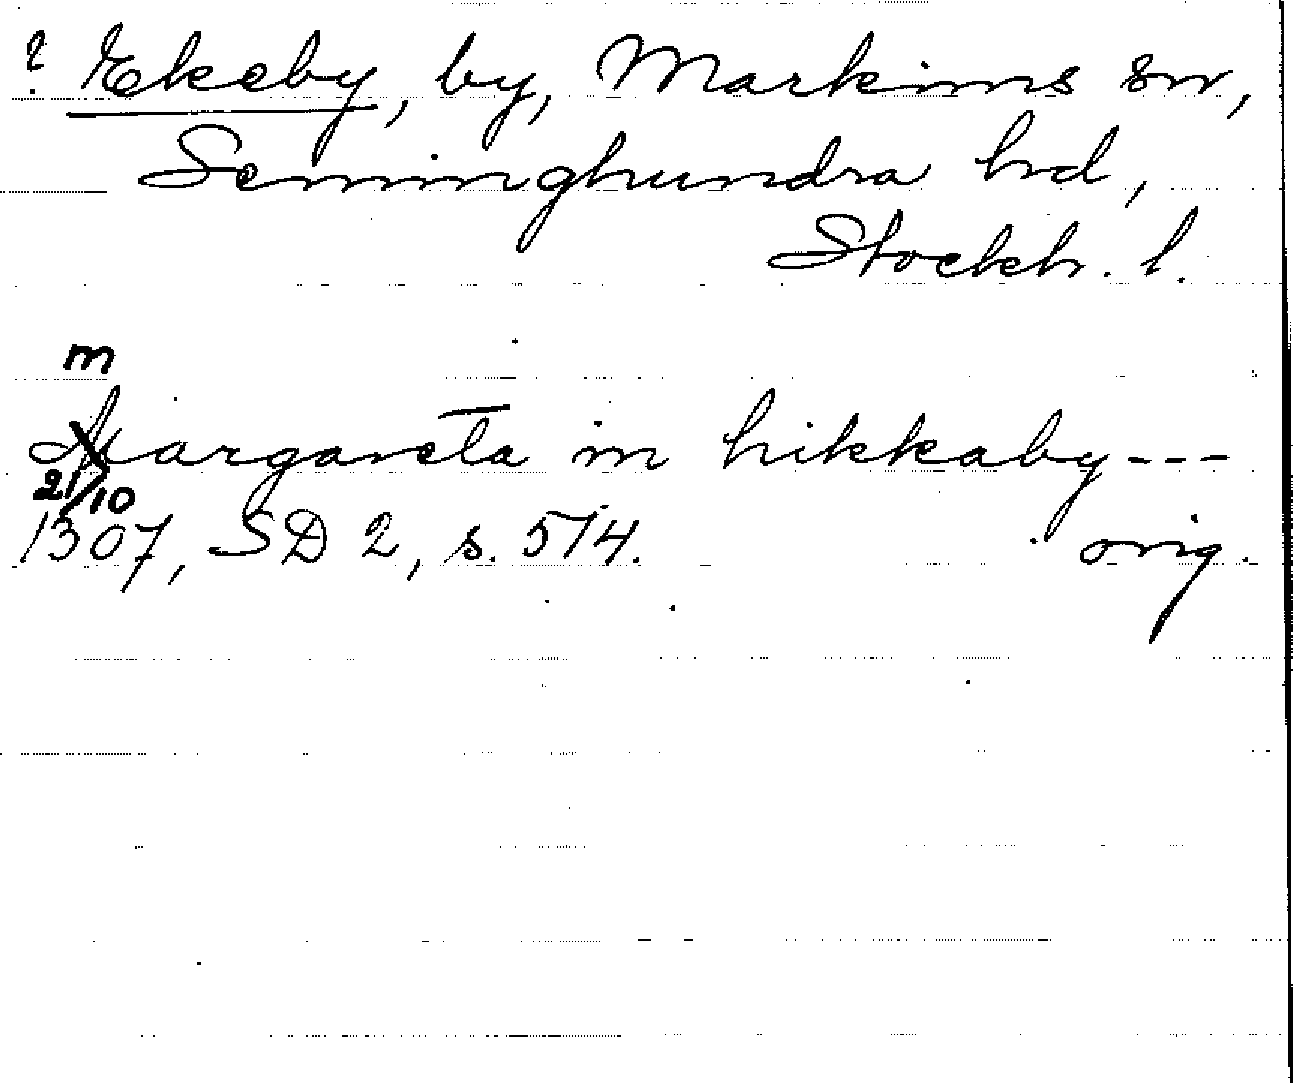 ? Ekeby, by, Markims sn,
Seminghundra hd,
Stockh. l.
m
Margareta in hikkaby---
21/10
1307, SD 2, s. 514. orig.